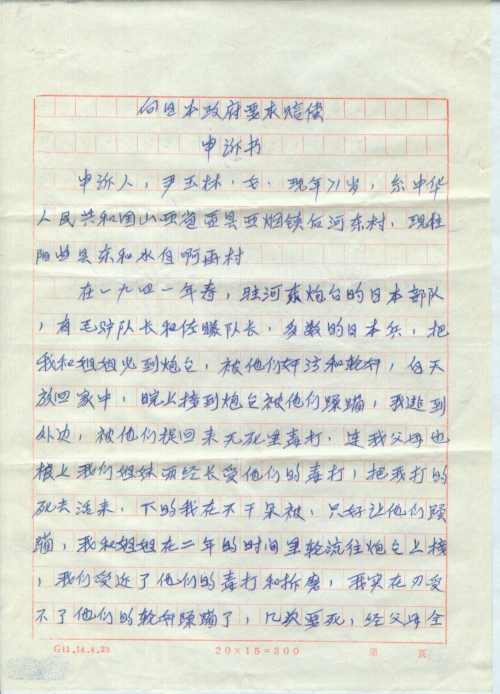 向日本政府要求赔偿
申诉书
申诉人，尹玉林，女，现年71岁，系中华
人民共和国山西省盂县西烟镇后河东村，现住
阳曲县东和水自啊再村
在一九四一年春，驻河东炮台的日本部队
，有毛驴队长和佐藤队长，多数的日本兵，把
我和姐姐必到炮台，被他们奸污和轮奸，白天
放回家中，晚上接到炮台被他们蹂蹦，我逃到
外边，被他们捉回来无死里毒打，连我父母也
根上我们姐妹而经长受他们的毒打，把我打的
死去活来，下的我在不干呆被，只好让他们蹂
蹦，我和姐姐在二年的时间里轮流往炮台上接
，我们受近了他们的毒打和折磨，我实在忍受
不了他们的轮奸蹂蹦了，几次要死，经父母全
G11.14.4.29 20×15=300 第 页